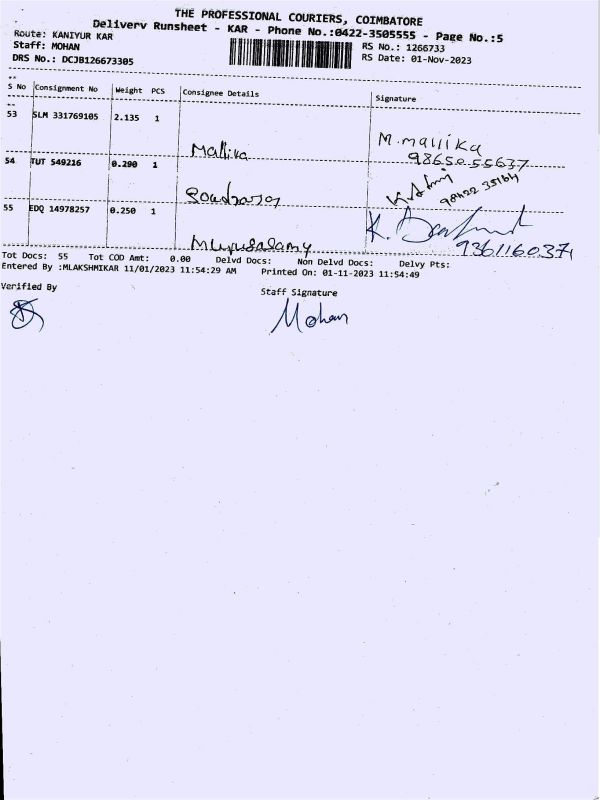 THE PROFESSIONAL COURIERS, COIMBATORE
Delivery Runsheet - KAR - Phone No.:0422-3505555 - Page No.:5
Route: KANIYUR KAR
Staff: MOHAN
DRS No.: DCJB126673305
RS No.: 1266733
RS Date: 01-Nov-2023
S No Consignment No Weight PCS Consignee Details Signature
53 SLM 331769105 2.135 1
Mallika M.mallika
98650 55637
54 TUT 549216 0.290 1
55 EDQ 14978257 0.250 1
K.
9361160371
Tot Docs: 55 Tot COD Amt: 0.00 Delvd Docs: Non Delvd Docs: Delvy Pts:
Entered By :MLAKSHMIKAR 11/01/2023 11:54:29 AM Printed On: 01-11-2023 11:54:49
Verified By
Staff Signature
Mohan